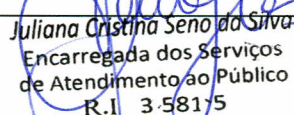 Juliana Cristina Seno da Silva
Encarregada dos Serviços
de Atendimento ao Público
R.I 3.581-5